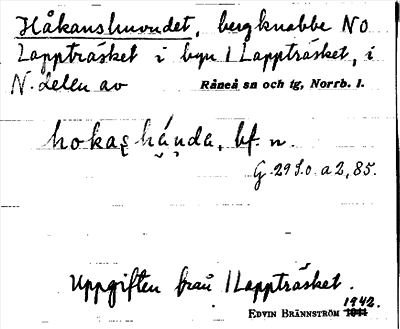 Håkanshuvudet, bergknabbe NO
Lappträsket i byn 1 Lappträsket, i
N. delen av Råneå sn och tg, Norrb. l.
hokas hạ́nda, bf. n.
G. 29 S.o. a 2, 85.
Uppgiften från 1 Lappträsket.
1942.
EDVIN BRÄNNSTRÖM 1941